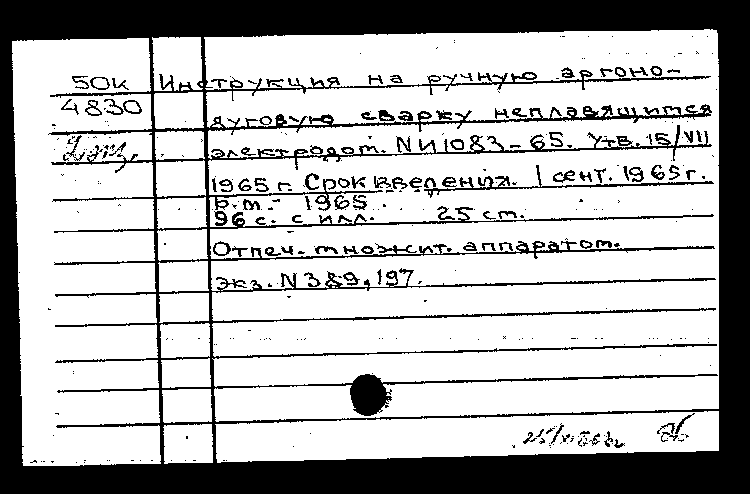 50к Инструкция на ручную аргоно-
4830 дуговую сварку неплавящимся
2 экз. электродом. NИ1083-65. Утв. 15/VII
1965 г. Срок введения. 1 сент. 1965 г.
Б.м. 1965.
96 с. с илл. 25 cm.
Отпеч. множит. аппаратом.
экз. N 389, 197.